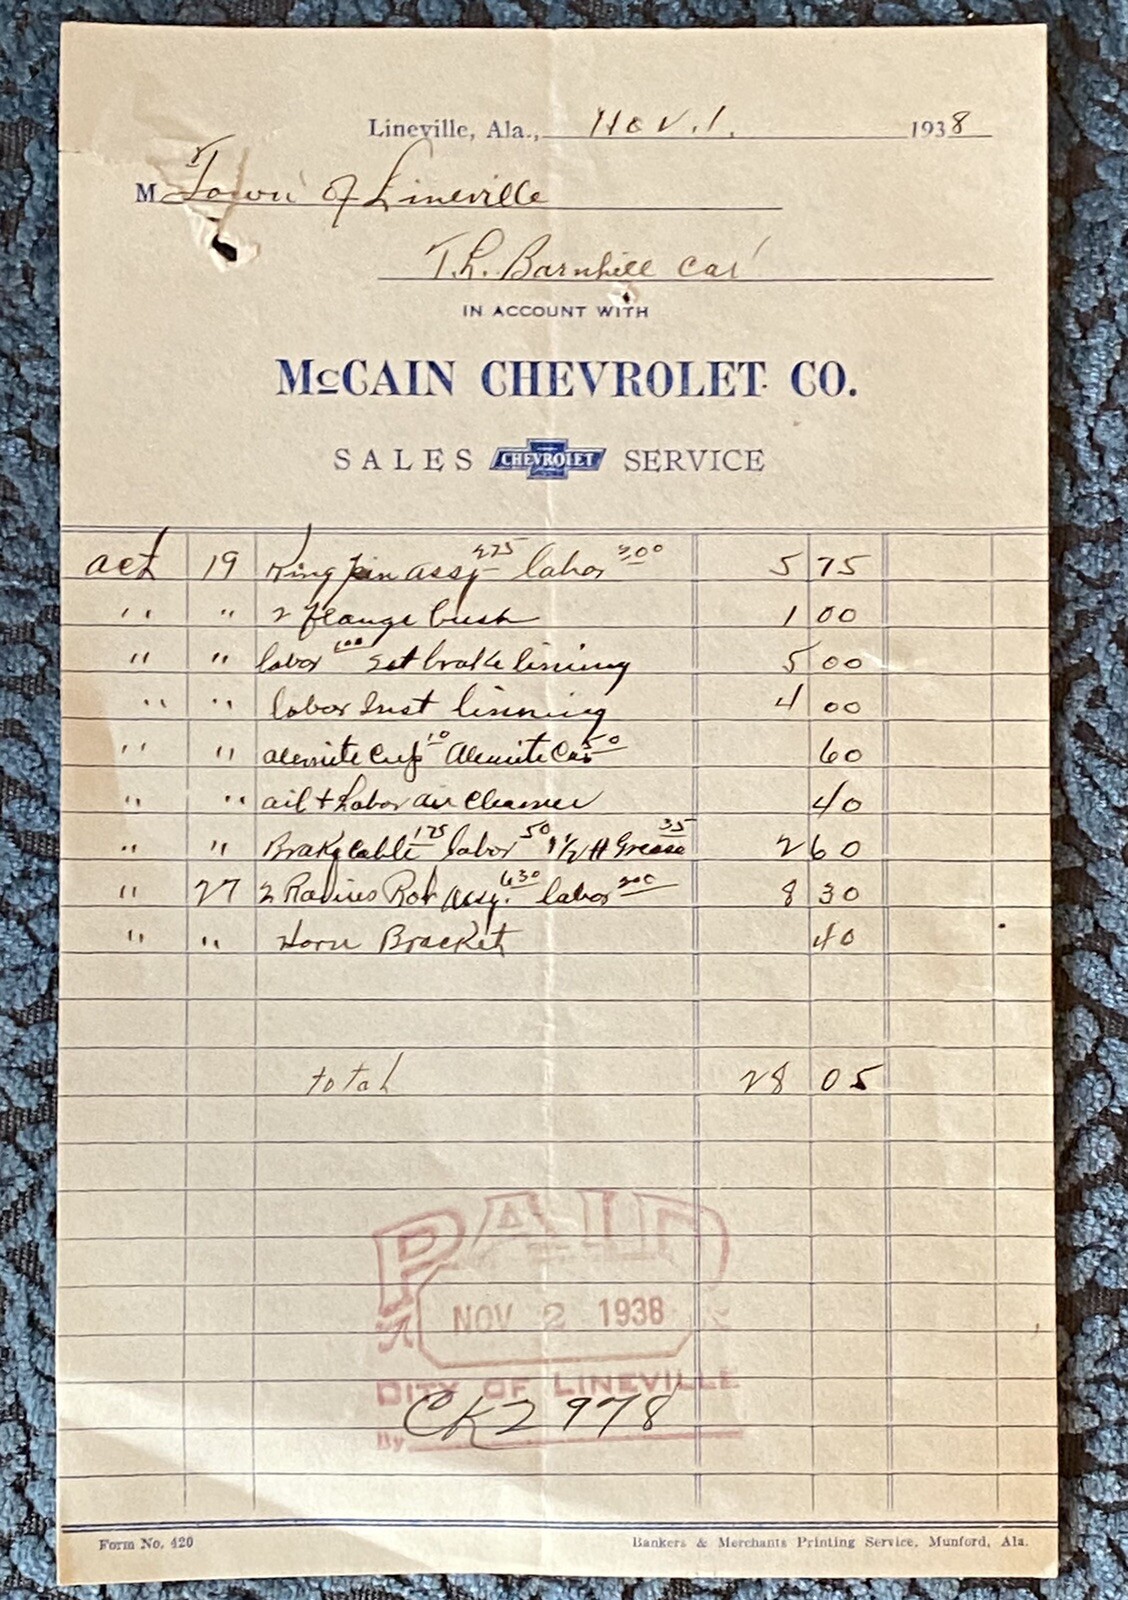 Lineville, Ala., Nov. 1. 1938
M Town of Lineville
T.L. Barnhill car
IN ACCOUNT WITH
McCAIN CHEVROLET CO.
SALES CHEVROLET SERVICE
Oct 19 King pin assy 275 labor 300 5 75
" " 2 flange bush 1 00
" " labor 100 set brake lining 5 00
" " labor Inst linning 4 00
" " alemite Cup 10 Alemite 50 60
" " oil + Labor air Cleaner 40
" " Brake cable 175 labor 50 1 1/2 # Grease 35 2 60
" 27 2 Radius Rod assy. 630 labor 200 8 30
" " Horn Bracket 40
total 28 05
PAID
NOV 2 1938
CITY OF LINEVILLE
CK 2978
By
Form No. 420 Bankers & Merchants Printing Service, Munford, Ala.